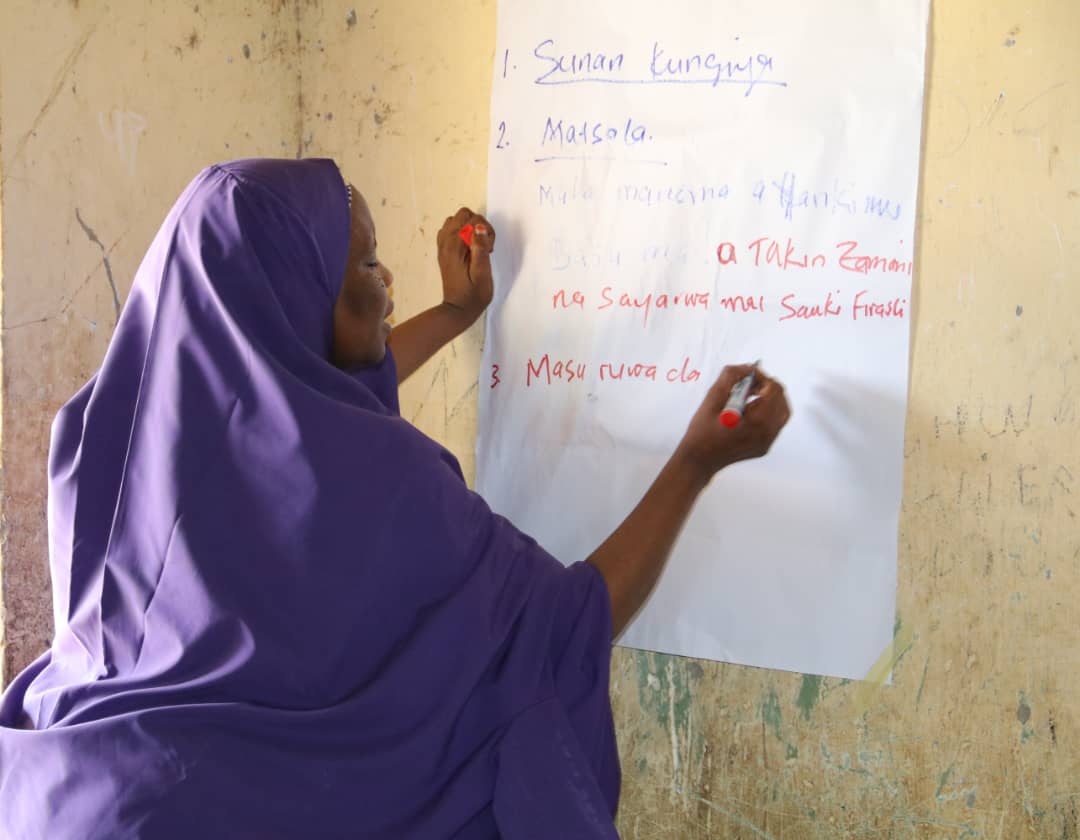 1. Sunan Kungiya
2. Matsola.
a Harki mu
a Takin Zamani
na Sayarwa mai Sauki Firashi
3. Masu ruwa da